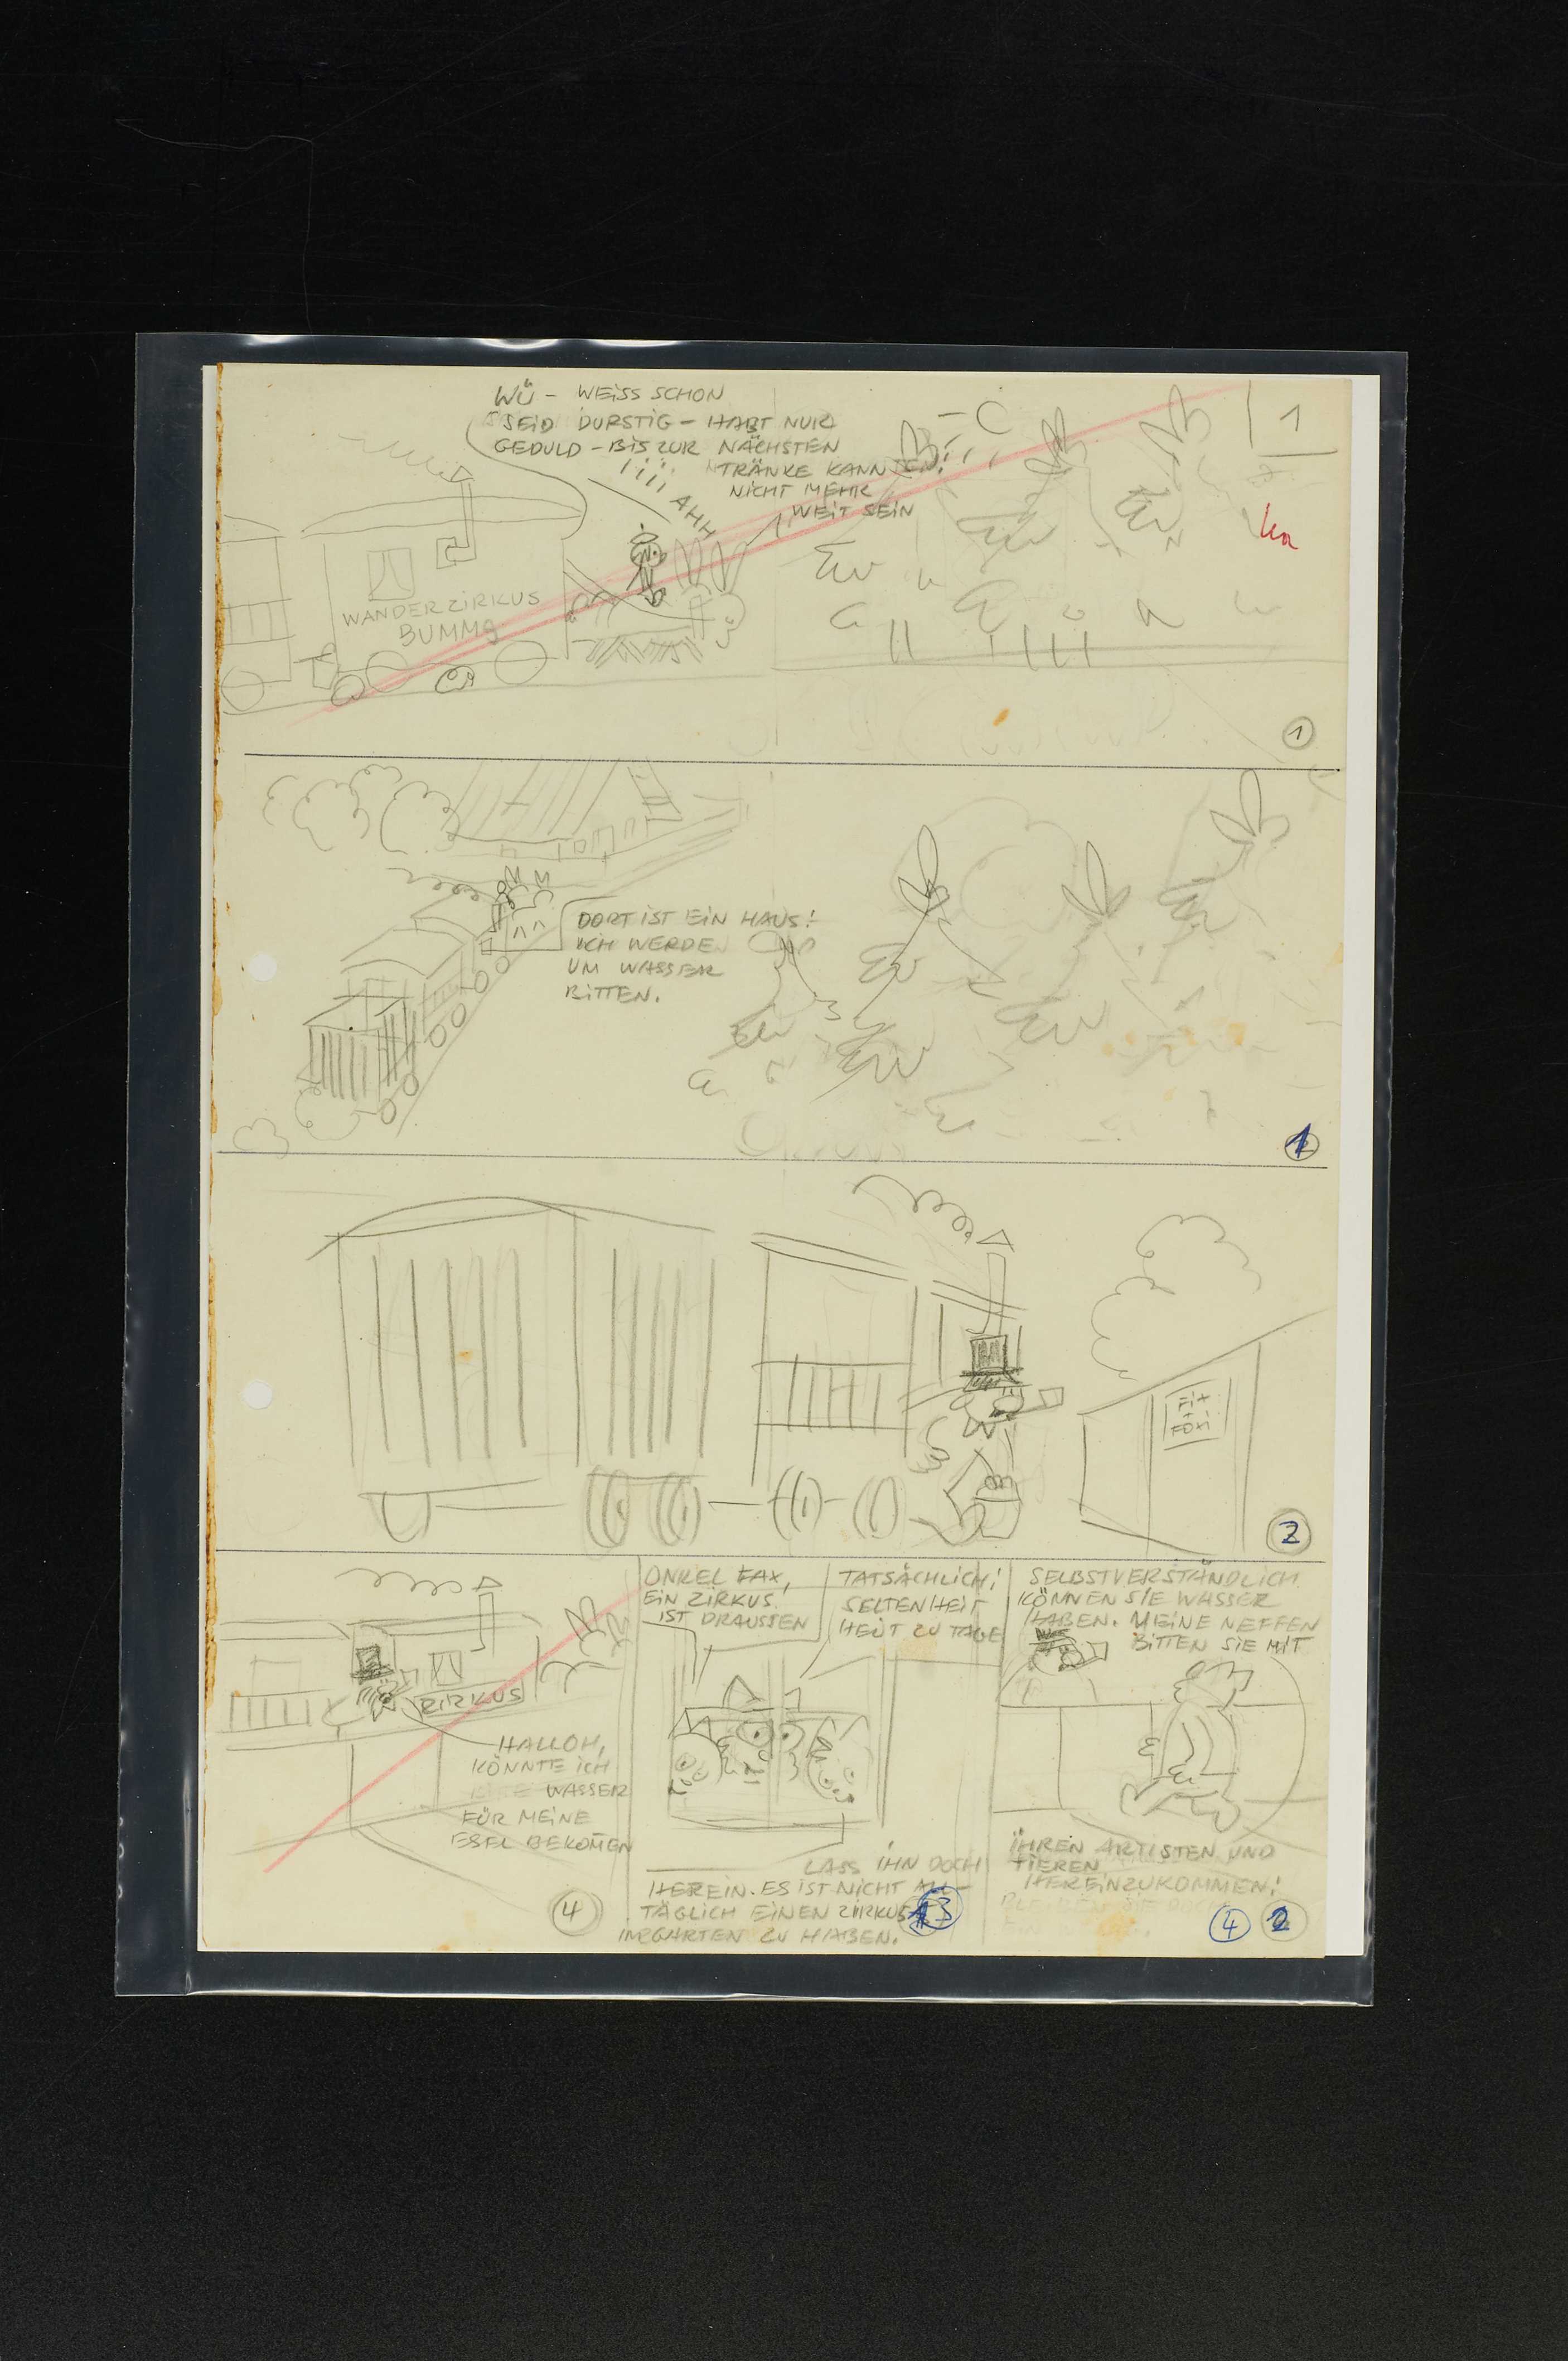 WÜ - WEISS SCHON
SEID DURSTIG - HABT NUR
GEDULD - BIS ZUR NÄCHSTEN
TRÄNKE KANN
NICHT MEHR
WEIT SEIN
AHH
1
WANDERZIRKUS
BUMM
1
DORT IST EIN HAUS!
ICH WERDE
UM WASSER
BITTEN.
1
Fix
+
FOXi
2
ZIRKUS
HALLOH,
KÖNNTE ICH
WASSER
FÜR MEINE
ESEL BEKOMEN
4
ONKEL FAX,
EIN ZIRKUS
IST DRAUSSEN
TATSÄCHLICH!
SELTENHEIT
HEUT ZU TAGE
LASS IHN DOCH
HEREIN. ES IST NICHT ALL-
TÄGLICH EINEN ZIRKUS
IM GARTEN ZU HABEN.
3
SELBSTVERSTÄNDLICH
KÖNNEN SIE WASSER
HABEN. MEINE NEFFEN
BITTEN SIE MIT
IHREN ARTISTEN UND
TIEREN
HEREINZUKOMMEN!
4 2